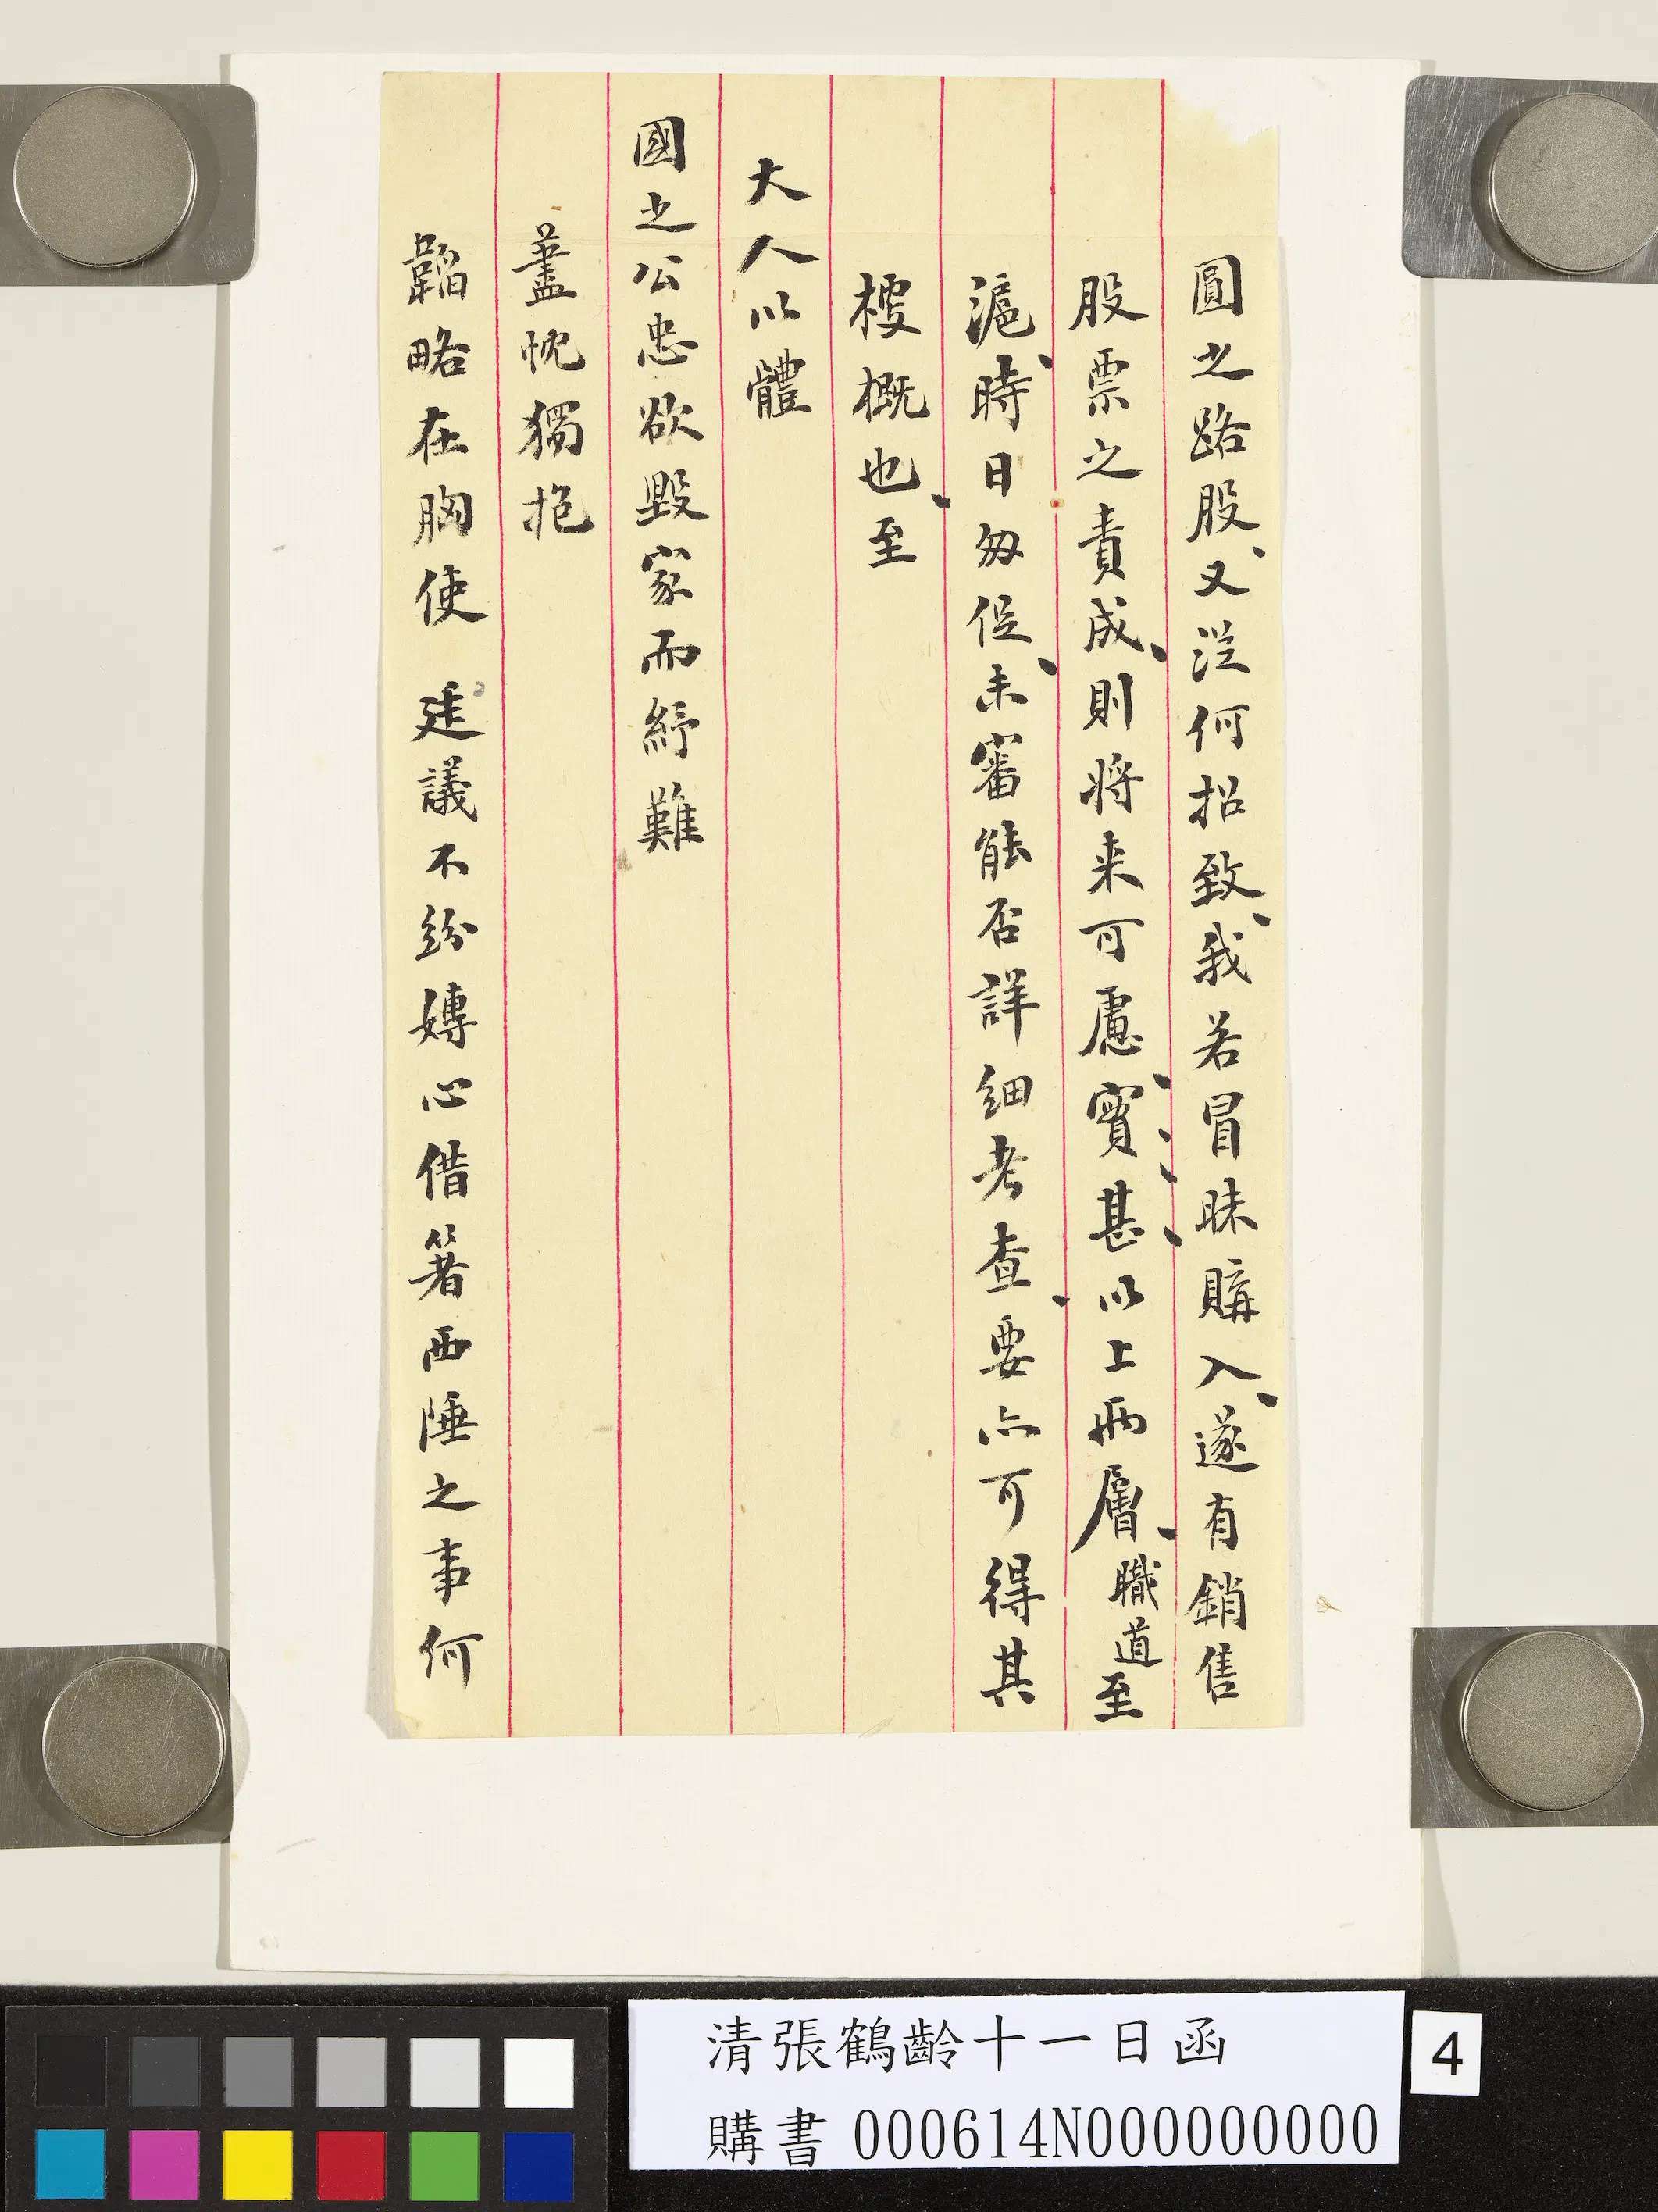 圓之路股、又從何招致、我若冒昧購入、遂有銷售
股票之責成、則將來可慮實甚以上兩層、職道至
滬、時日匆促、未審能否詳細考查、要亦可得其
梗概也、至
大人以體
國之公忠欲毀家而紓難
藎忱獨抱
韜略在胸使 廷議不紛嫥心借箸西陲之事何
清張鶴齡十一日函
購書 000614N000000000
4